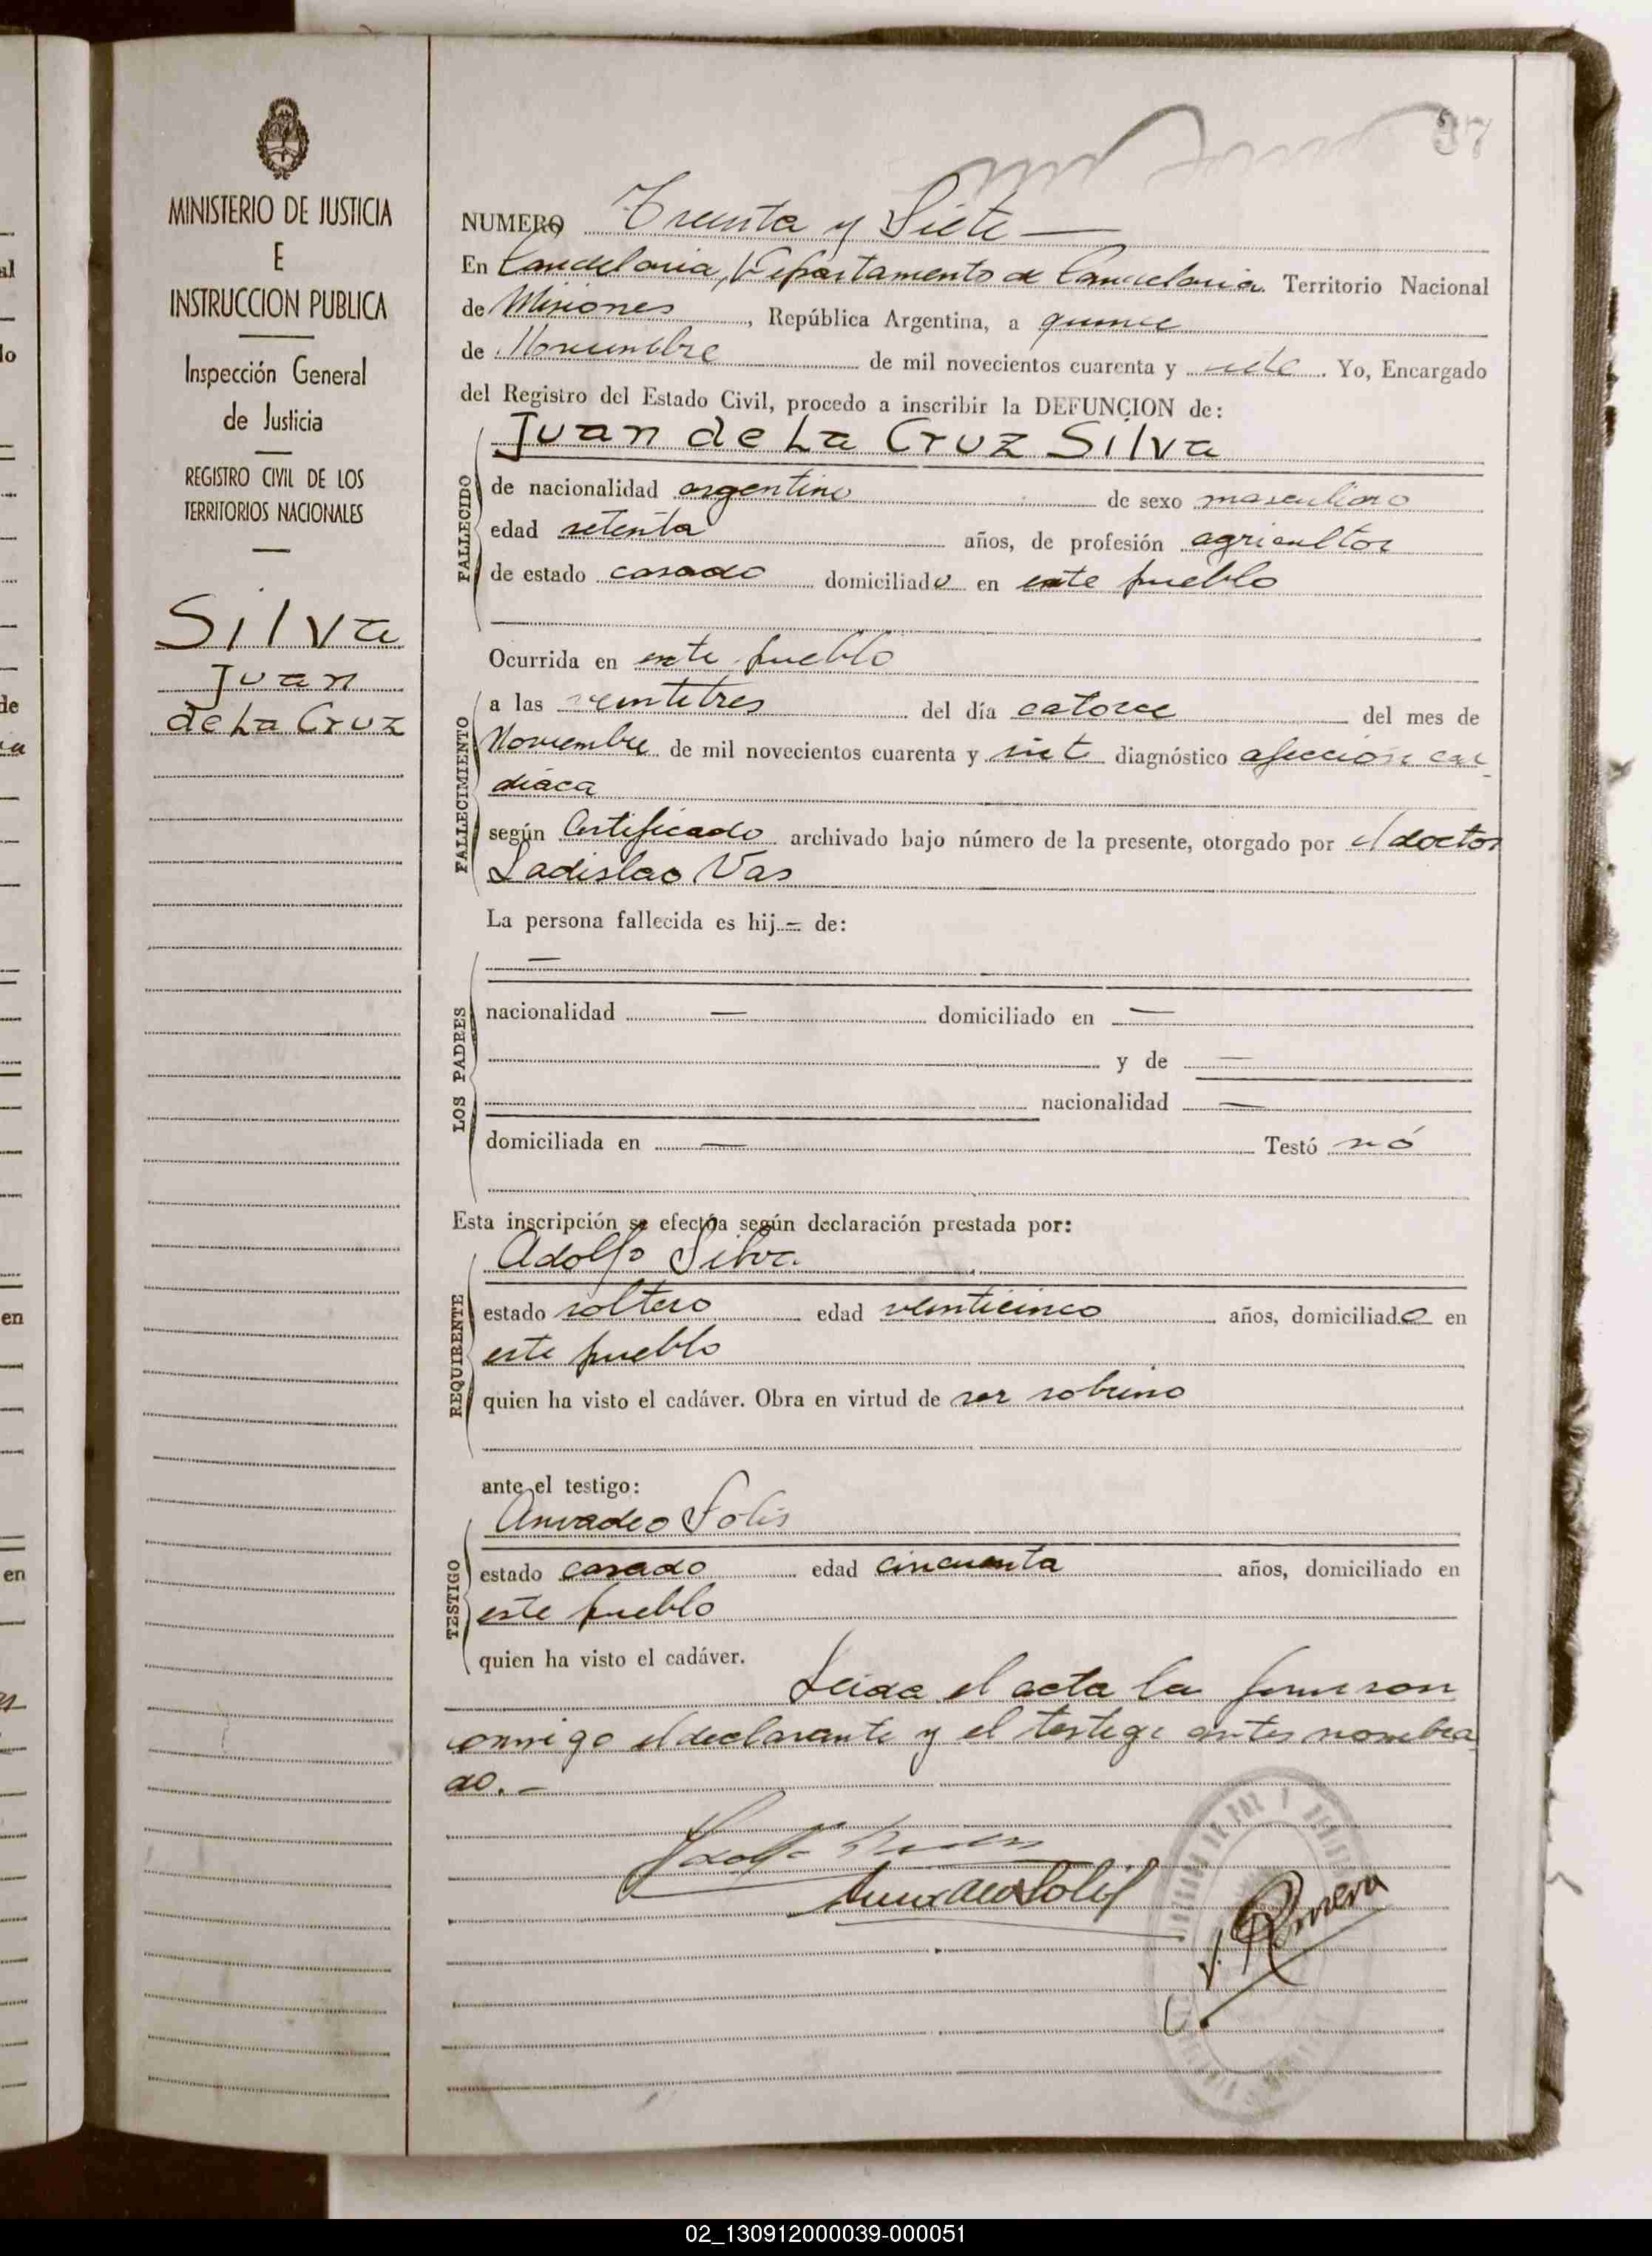 MINISTERIO DE JUSTICIA
E
INSTRUCCION PUBLICA
Inspección General
de Justicia
REGISTRO CIVIL DE LOS
TERRITORIOS NACIONALES
Silva
Juan
de La Cruz
37
NUMERO Treinta y Siete —
En Candelaria, Departamento de Candelaria Territorio Nacional
de Misiones, República Argentina, a quince
de Noviembre de mil novecientos cuarenta y siete. Yo, Encargado
del Registro del Estado Civil, procedo a inscribir la DEFUNCION de:
Juan de La Cruz Silva
FALLECIDO
de nacionalidad argentino de sexo masculino
edad setenta años, de profesión agricultor
de estado casado domiciliado en este pueblo
Ocurrida en este pueblo
FALLECIMIENTO
a las veintitres del día catorce del mes de
Noviembre de mil novecientos cuarenta y siete diagnóstico afección car
díaca
según Certificado archivado bajo número de la presente, otorgado por el doctor
Ladislao Vas
La persona fallecida es hij- de:
—
LOS PADRES
nacionalidad — domiciliado en —
y de —
nacionalidad —
domiciliada en — Testó nó
Esta inscripción se efectúa según declaración prestada por:
Adolfo Silva
REQUIRENTE
estado soltero edad veinticinco años, domiciliado en
este pueblo
quien ha visto el cadáver. Obra en virtud de ser sobrino
ante el testigo:
Amadeo Solis
TESTIGO
estado casado edad cincuenta años, domiciliado en
este pueblo
quien ha visto el cadáver.
Leida el acta la firmaron
conmigo el declarante y el testigo antes nombra
do.-
Amadeo Solis
02_130912000039-000051